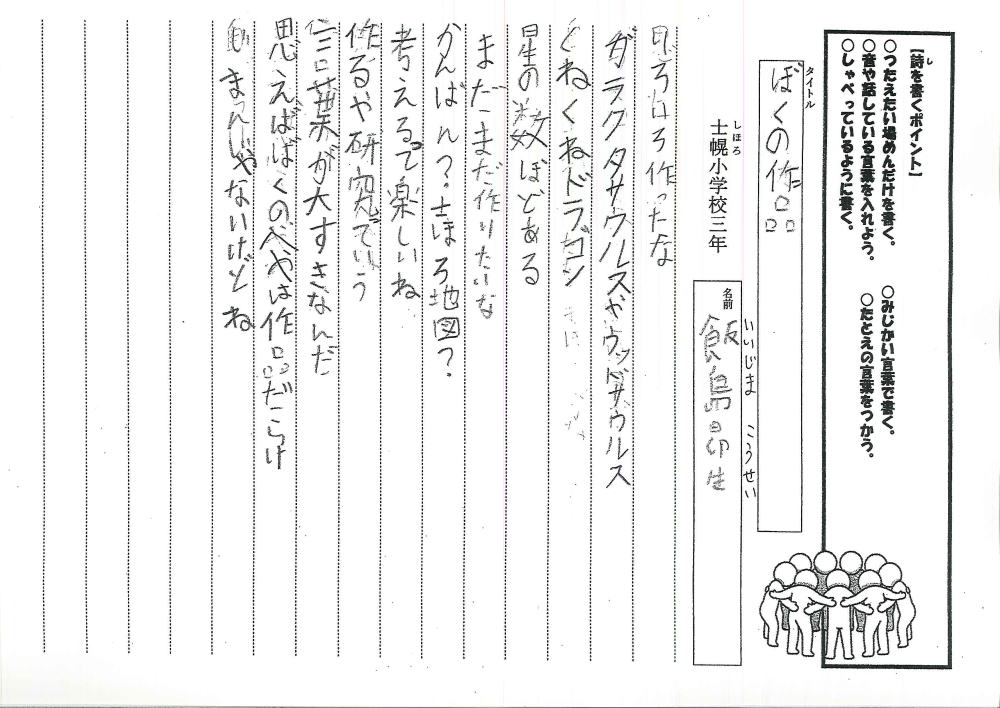 【詩を書くポイント】
し
○つたえたい場めんだけを書く。
○みじかい言葉で書く。
○音や話している言葉を入れよう。
○たとえの言葉をつかう。
○しゃべっているように書く。
タイトル
ぼくの作品
しほろ
士幌小学校三年
名前
いいじま こうせい
飯島昂生
いろいろ作ったな
ガラクタサウルスやウッドサウルス
くねくねドラゴン
星の数ほどある
まだまだ作りたいな
かんばん?士ほろ地図?
考えるって楽しいね
作るや研究ていう
言葉が大すきなんだ
思えばぼくのへやは作品だらけ
まんじゃないけどね